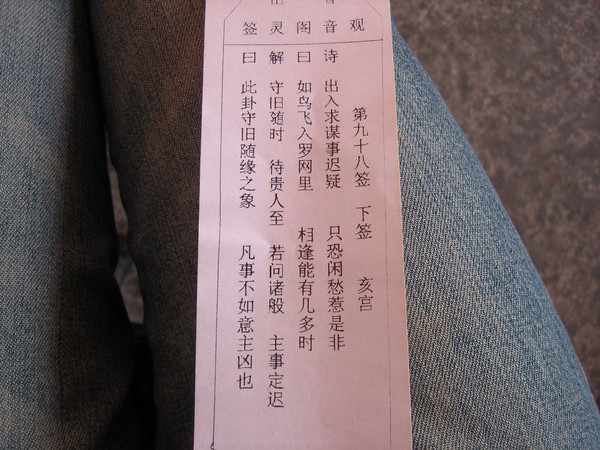 观音阁灵签
第九十八签 下签 亥宫
诗 出入求谋事迟疑 只恐闲愁惹是非
曰 如鸟飞入罗网里 相逢能有几多时
解 守旧随时 待贵人至 若问诸般 主事定迟
曰 此卦守旧随缘之象 凡事不如意主凶也